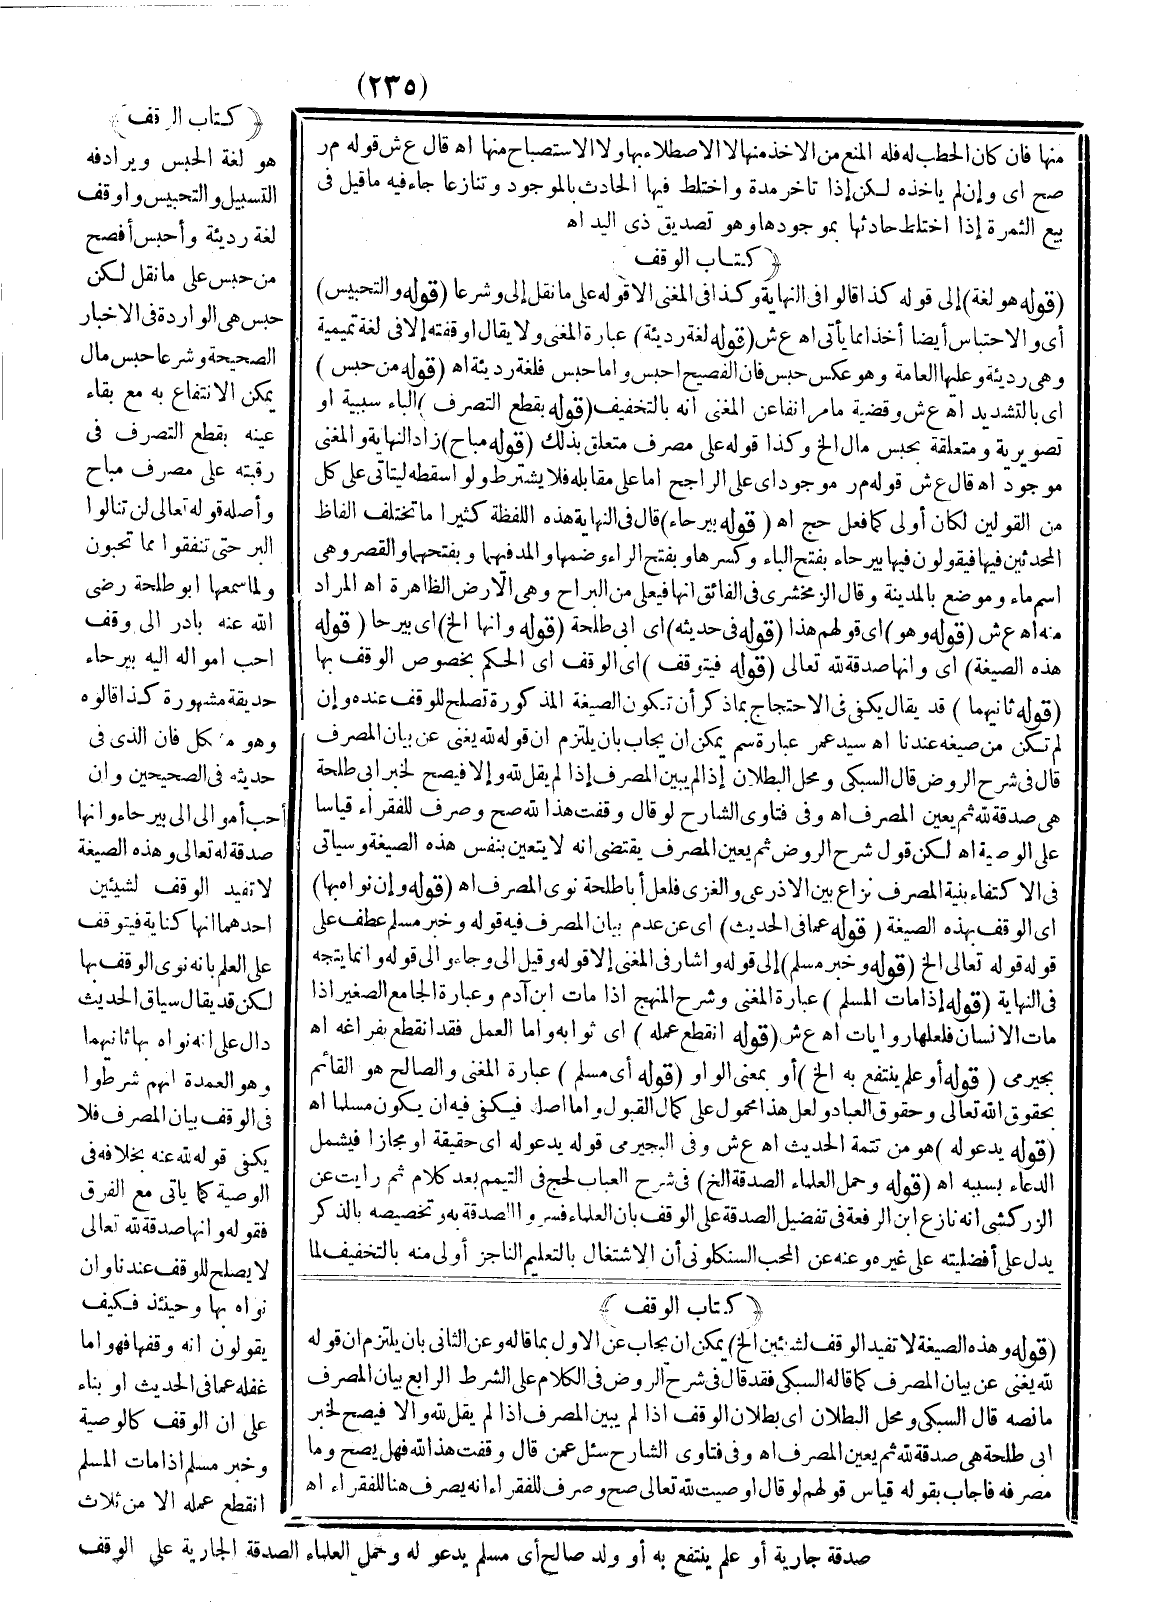 (٢٣٥)
﴿ كتاب الوقف ﴾
هو لغة الحبس ويرادفه
التسبيل والتحبيس واوقف
لغة رديئة وأحبس أفصح
من حبس على ما نقل لكن
حبس هى الواردة فى الاخبار
الصحيحة وشرعا حبس مال
يمكن الانتفاع به مع بقاء
عينه بقطع التصرف فى
رقبته على مصرف مباح
وأصله قوله تعالى لن تنالوا
البر حتى تنفقوا مما تحبون
ولما سمعها ابو طلحة رضى
الله عنه بادر الى وقف
احب امواله اليه بيرحاء
حديقة مشهورة كذا قالوه
وهو مشكل فان الذى فى
حديثه فى الصحيحين وان
أحب أموالى الى بيرحاء وانها
صدقة لله تعالى وهذه الصيغة
لا تفيد الوقف لشيئين
احدهما انها كناية فيتوقف
على العلم بانه نوى الوقف بها
لكن قد يقال سياق الحديث
دال على انه نواه بها ثانيهما
وهو العمدة انهم شرطوا
فى الوقف بيان المصرف فلا
يكفى قوله لله عنه بخلافه فى
الوصية كما ياتى مع الفرق
فقوله وانها صدقة لله تعالى
لا يصلح للوقف عندنا وان
نواه بها وحينئذ فكيف
يقولون انه وقفها فهو اما
غفله عما فى الحديث او بناء
على ان الوقف كالوصية
وخبر مسلم اذا مات المسلم
انقطع عمله الا من ثلاث
صدقة جارية أو علم ينتفع به أو ولد صالح أى مسلم يدعو له وحمل العلماء الصدقة الجارية على الوقف
منها فان كان الحطب له فله المنع من الاخذ منها لا الاصطلاء بها ولا الاستصباح منها اه قال ع ش قوله م ر
صح اى وإن لم ياخذه لكن إذا تاخر مدة واختلط فيها الحادث بالموجود وتنازعا جاء فيه ما قيل فى
بيع الثمرة إذا اختلط حادثها بموجودها وهو تصديق ذى اليد اه
﴿ كتاب الوقف ﴾
(قوله هو لغة) إلى قوله كذا قالوا فى النهاية وكذا فى المغنى الا قوله على ما نقل إلى وشرعا (قوله والتحبيس)
أى والاحتباس أيضا أخذا مما يأتى اه ع ش (قوله لغة رديئة) عبارة المغنى ولا يقال اوقفته إلا فى لغة تميمية
وهى رديئة وعليها العامة وهو عكس حبس فان الفصيح احبس واما حبس فلغة رديئة اه (قوله من حبس)
اى بالتشديد اه ع ش وقضية ما مر انفا عن المغنى انه بالتخفيف (قوله بقطع التصرف) الباء سببية او
تصويرية ومتعلقة بحبس مال الخ وكذا قوله على مصرف متعلق بذلك (قوله مباح) زاد النهاية والمغنى
موجود اه قال ع ش قوله م ر موجود اى على الراجح اما على مقابله فلا يشترط ولو اسقطه ليتاتى على كل
من القولين لكان أولى كما فعل حج اه (قوله بيرحاء) قال فى النهاية هذه اللفظة كثيرا ما تختلف الفاظ
المحدثين فيها فيقولون فيها بيرحاء بفتح الباء وكسرها وبفتح الراء وضمها والمد فيهما وبفتحهما والقصر وهى
اسم ماء وموضع بالمدينة وقال الزمخشرى فى الفائق انها فيعلى من البراح وهى الأرض الظاهرة اه المراد
منه اه ع ش (قوله وهو) اى قولهم هذا (قوله فى حديثه) اى ابى طلحة (قوله وانها الخ) اى بيرحا (قوله
هذه الصيغة) اى وانها صدقة لله تعالى (قوله فيتوقف) اى الوقف اى الحكم بخصوص الوقف بها
(قوله ثانيهما) قد يقال يكفى فى الاحتجاج بما ذكر أن تكون الصيغة المذكورة تصلح للوقف عنده وإن
لم تكن من صيغه عندنا اه سيد عمر عبارة سم يمكن ان يجاب بان يلتزم ان قوله لله يغنى عن بيان المصرف
قال فى شرح الروض قال السبكى ومحل البطلان إذا لم يبين المصرف إذا لم يقل لله والا فيصح لخبر ابى طلحة
هى صدقة لله ثم يعين المصرف اه وفى فتاوى الشارح لو قال وقفت هذا لله صح وصرف للفقراء قياسا
على الوصية اه لكن قول شرح الروض ثم يعين المصرف يقتضى انه لا يتعين بنفس هذه الصيغة وسياتى
فى الاكتفاء بنية المصرف نزاع بين الاذرعى والغزى فلعل أبا طلحة نوى المصرف اه (قوله وإن نواه بها)
اى الوقف بهذه الصيغة (قوله عما فى الحديث) اى عن عدم بيان المصرف فيه قوله وخبر مسلم عطف على
قوله قوله تعالى الخ (قوله وخبر مسلم) إلى قوله واشار فى المغنى إلا قوله وقيل الى وجاء والى قوله وانما يتجه
فى النهاية (قوله إذا مات المسلم) عبارة المغنى وشرح المنهج اذا مات ابن آدم وعبارة الجامع الصغير اذا
مات الانسان فلعلها روايات اه ع ش (قوله انقطع عمله) اى ثوابه واما العمل فقد انقطع بفراغه اه
بجيرمى (قوله أو علم ينتفع به الخ) أو بمعنى الواو (قوله أى مسلم) عبارة المغنى والصالح هو القائم
بحقوق الله تعالى وحقوق العباد ولعل هذا محمول على كمال القبول واما اصله فيكفى فيه ان يكون مسلما اه
(قوله يدعو له) هو من تتمة الحديث اه ع ش وفى البجيرمى قوله يدعو له اى حقيقة او مجازا فيشمل
الدعاء بسببه اه (قوله وحمل العلماء الصدقة الخ) فى شرح العباب لحج فى التيمم بعد كلام ثم رايت عن
الزركشى انه نازع ابن الرفعة فى تفضيل الصدقة على الوقف بان العلماء فسروا الصدقة به وتخصيصه بالذكر
يدل على أفضليته على غيره وعنه عن المحب السنكلونى أن الاشتغال بالتعليم الناجز أولى منه بالتخفيف لما
﴿ كتاب الوقف ﴾
(قوله وهذه الصيغة لا تفيد الوقف لشيئين الخ) يمكن ان يجاب عن الاول بما قاله وعن الثانى بان يلتزم ان قوله
لله يغنى عن بيان المصرف كما قاله السبكى فقد قال فى شرح الروض فى الكلام على الشرط الرابع بيان المصرف
ما نصه قال السبكى ومحل البطلان اى بطلان الوقف اذا لم يبين المصرف اذا لم يقل لله والا فيصح لخبر
ابى طلحة هى صدقة لله ثم يعين المصرف اه وفى فتاوى الشارح سئل عمن قال وقفت هذا لله فهل يصح وما
مصرفه فاجاب بقوله قياس قولهم لو قال اوصيت لله تعالى صح وصرف للفقراء انه يصرف هنا للفقراء اه